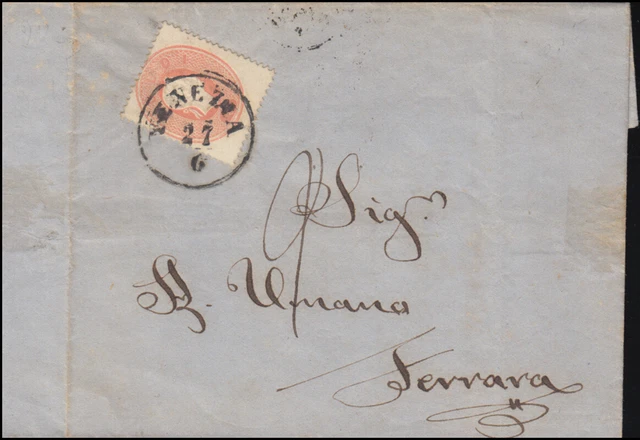 VENEZIA
27
6
Sig.r
Umana
Ferrara